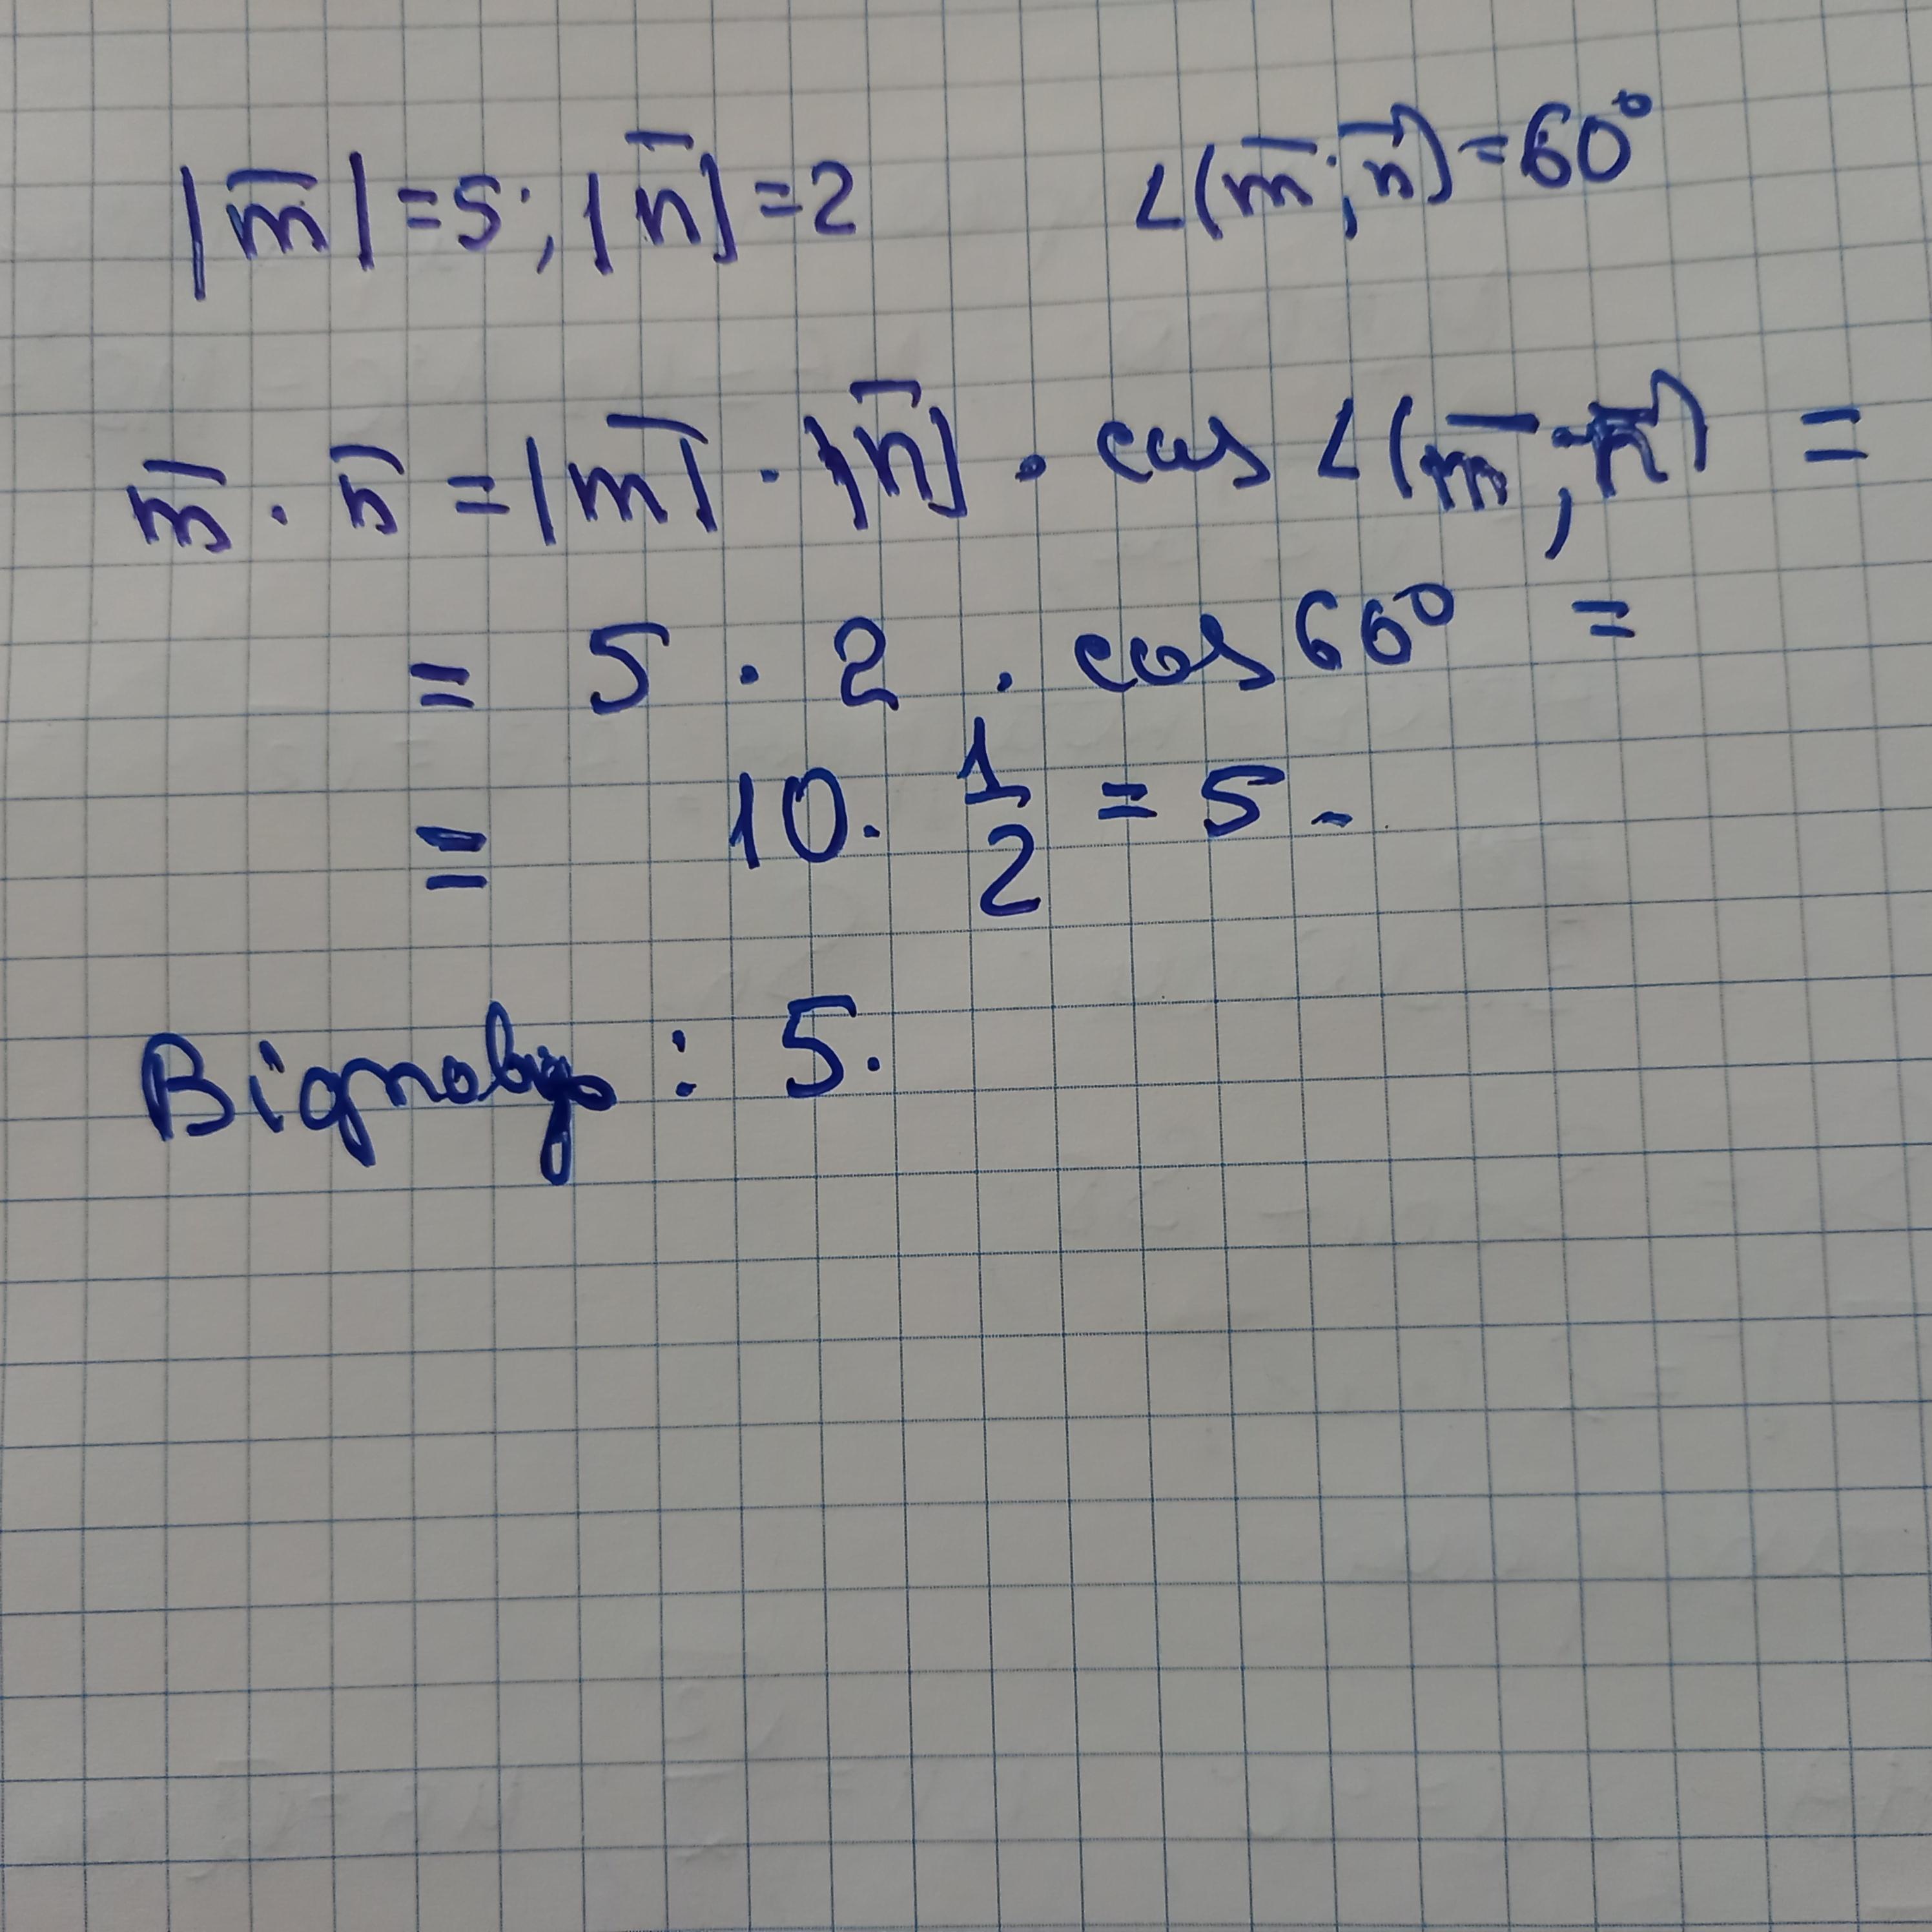 |m̅| = 5; |n̅| = 2 ∠(m̅; n̅) = 60°
m̅ · n̅ = |m̅| · |n̅| · cos ∠(m̅; n̅) =
= 5 · 2 · cos 60° =
= 10 · 1/2 = 5.
Відповідь: 5.